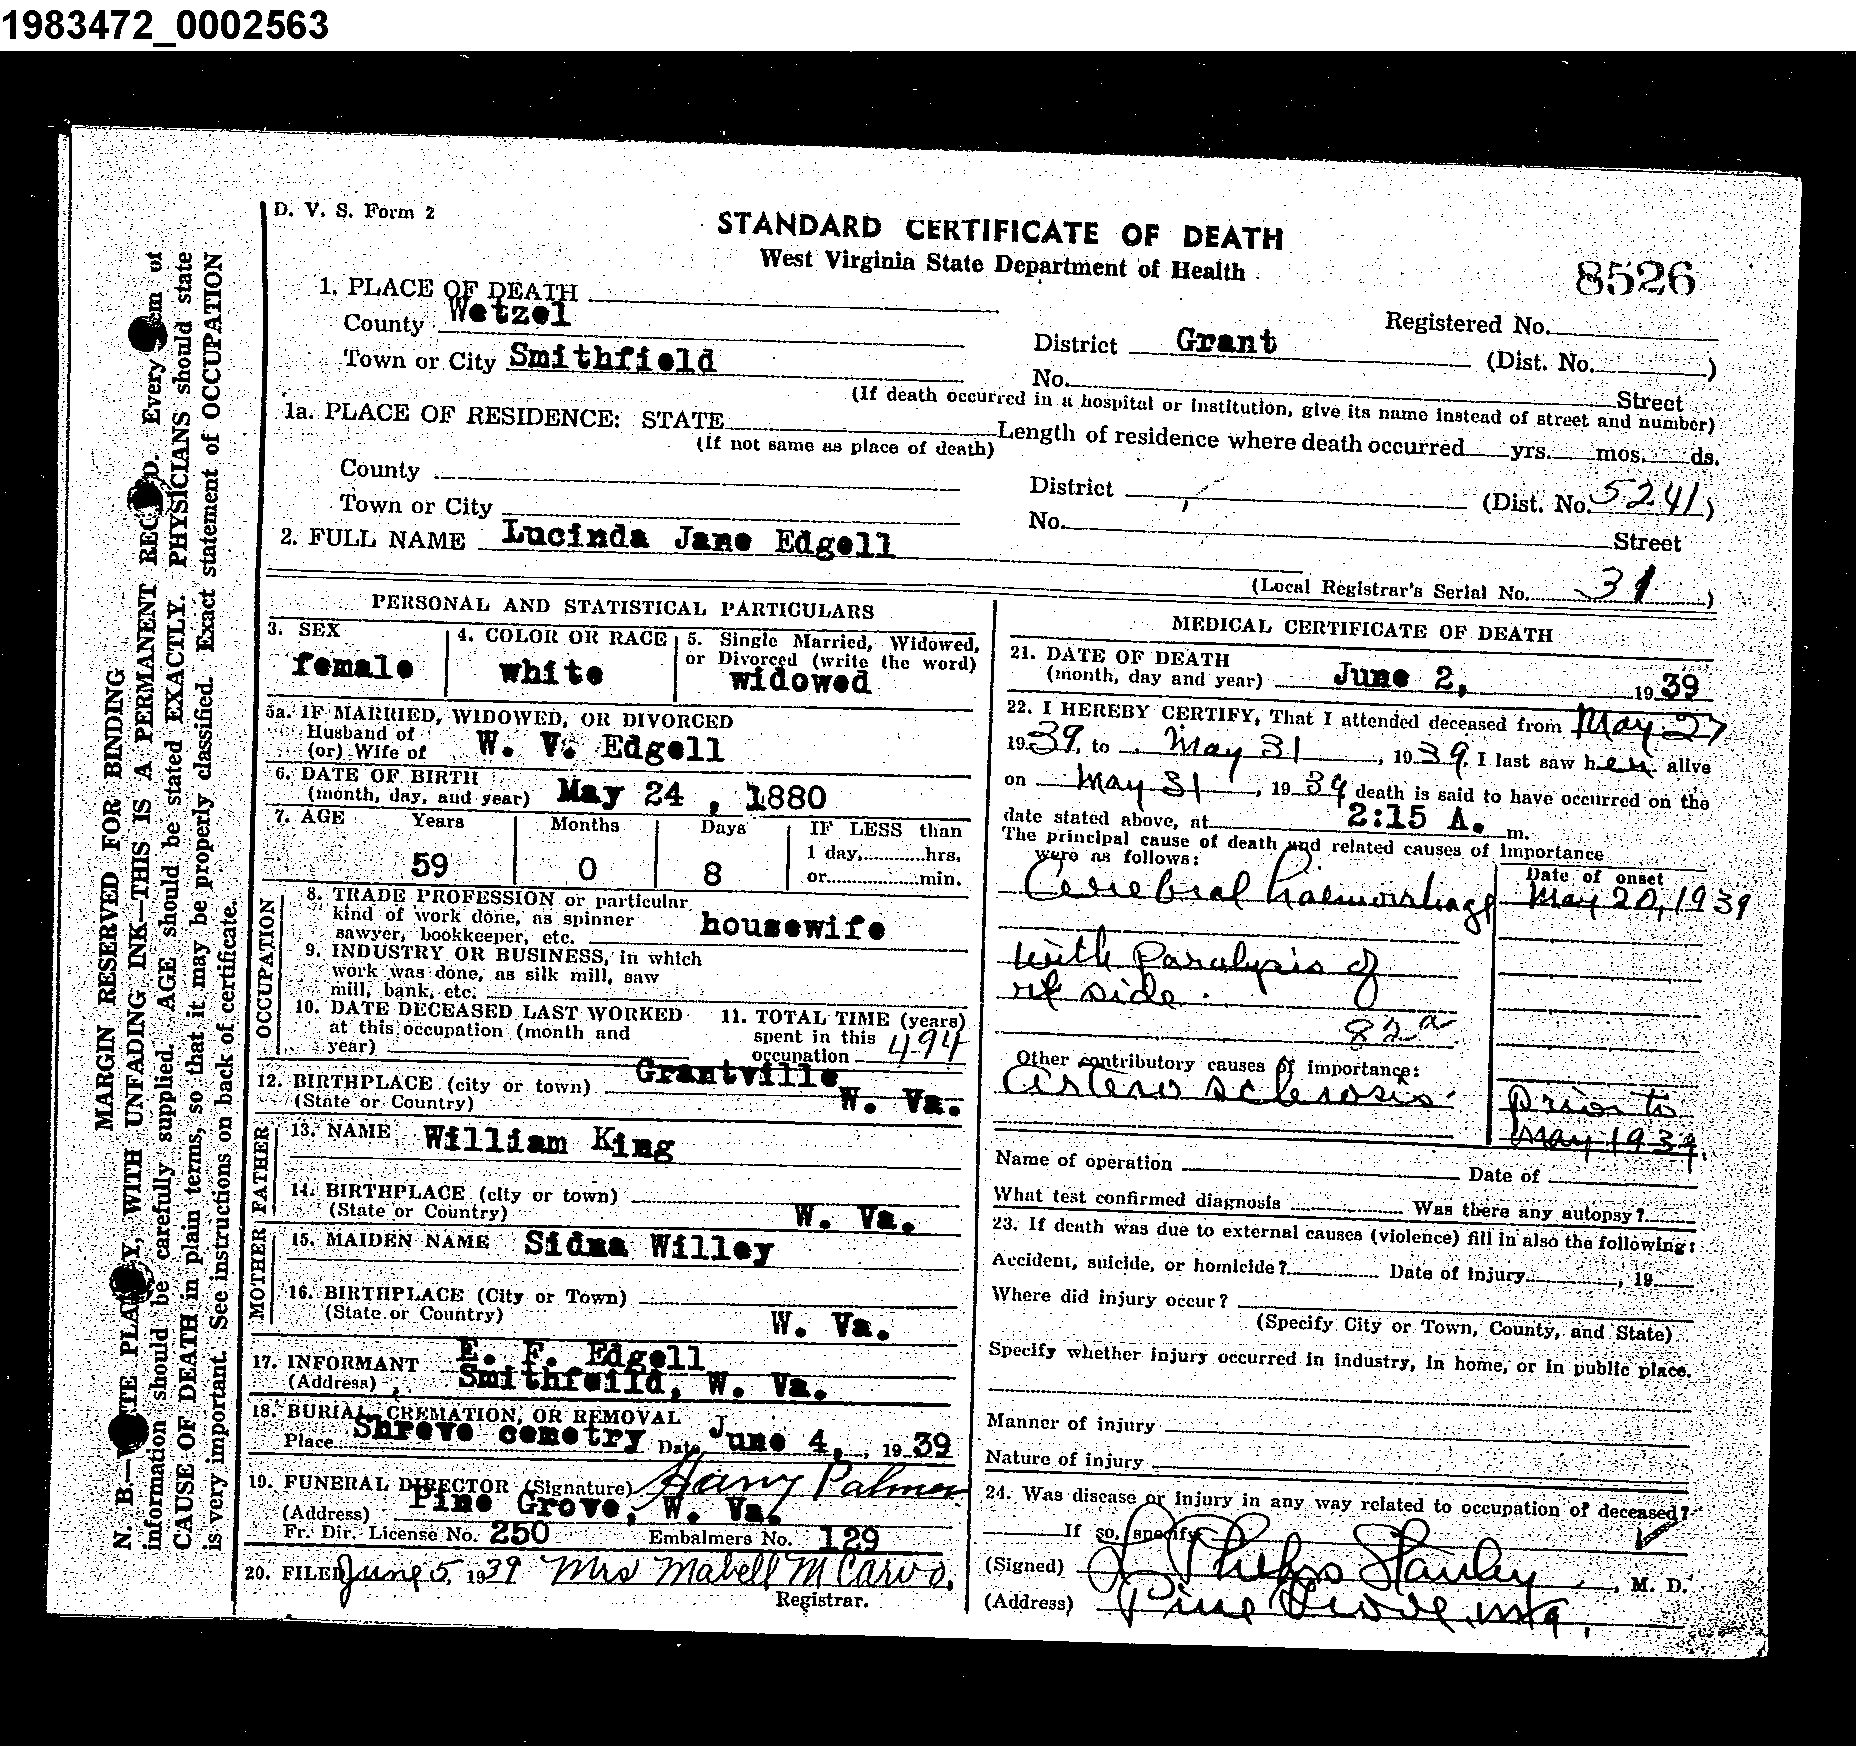 1983472_0002563
D. V. S. Form 2
STANDARD CERTIFICATE OF DEATH
West Virginia State Department of Health
8526
1. PLACE OF DEATH
County Wetzel
Registered No.
District Grant (Dist. No. )
Town or City Smithfield
No. Street
(If death occurred in a hospital or institution, give its name instead of street and number)
1a. PLACE OF RESIDENCE: STATE Length of residence where death occurred yrs. mos. ds.
(If not same as place of death)
County
District (Dist. No. 5241)
Town or City
No. Street
2. FULL NAME Lucinda Jane Edgell
(Local Registrar's Serial No. 31 )
PERSONAL AND STATISTICAL PARTICULARS
3. SEX female
4. COLOR OR RACE white
5. Single Married, Widowed,
or Divorced (write the word)
widowed
5a. IF MARRIED, WIDOWED, OR DIVORCED
Husband of
(or) Wife of W. V. Edgell
6. DATE OF BIRTH
(month, day, and year) May 24 , 1880
7. AGE Years Months Days IF LESS than
1 day, hrs.
59 0 8 or min.
OCCUPATION
8. TRADE PROFESSION or particular
kind of work done, as spinner
sawyer, bookkeeper, etc. housewife
9. INDUSTRY OR BUSINESS, in which
work was done, as silk mill, saw
mill, bank, etc.
10. DATE DECEASED LAST WORKED
at this occupation (month and
year)
11. TOTAL TIME (years)
spent in this
occupation 494
12. BIRTHPLACE (city or town) Grantville
(State or Country) W. Va.
FATHER
13. NAME William King
14. BIRTHPLACE (city or town)
(State or Country) W. Va.
MOTHER
15. MAIDEN NAME Sidna Willey
16. BIRTHPLACE (City or Town)
(State or Country) W. Va.
17. INFORMANT E. F. Edgell
(Address) Smithfeild, W. Va.
18. BURIAL, CREMATION, OR REMOVAL
Place Shreve cemetry Date June 4, 1939
19. FUNERAL DIRECTOR (Signature) Harry Palmer
(Address) Pine Grove, W. Va.
Fr. Dir. License No. 250 Embalmers No. 129
20. FILED June 5, 1939 Mrs Mabell M
Registrar.
MEDICAL CERTIFICATE OF DEATH
21. DATE OF DEATH
(month, day and year) June 2, 1939
22. I HEREBY CERTIFY, That I attended deceased from May 27
1939, to May 31, 1939, I last saw her alive
on May 31, 1939 death is said to have occurred on the
date stated above, at 2:15 A. m.
The principal cause of death and related causes of importance
were as follows:
Date of onset
Cerebral haemorrhage May 20, 1939
with paralysis of
rt side.
82a
Other contributory causes of importance:
Arterio sclerosis prior to
May 1939.
Name of operation Date of
What test confirmed diagnosis Was there any autopsy?
23. If death was due to external causes (violence) fill in also the following:
Accident, suicide, or homicide? Date of injury , 19
Where did injury occur?
(Specify City or Town, County, and State)
Specify whether injury occurred in industry, in home, or in public place.
Manner of injury
Nature of injury
24. Was disease or injury in any way related to occupation of deceased?
If so, specify
(Signed) Phelps Stanley, M. D.
(Address) Pine Grove,
MARGIN RESERVED FOR BINDING
N. B.—WRITE PLAINLY, WITH UNFADING INK—THIS IS A PERMANENT RECORD. Every item of
information should be carefully supplied. AGE should be stated EXACTLY. PHYSICIANS should state
CAUSE OF DEATH in plain terms, so that it may be properly classified. Exact statement of OCCUPATION
is very important. See instructions on back of certificate.